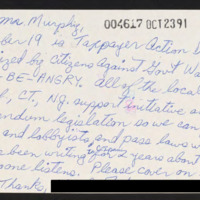 Ms. Murphy, 004617 OCT 23 91
ber 19 is Taxpayer Action D
zed by Citizens Against Gov't Wa
- BE-ANGRY. All of the local
CT, NJ. support initiative a
endum legislation so we can
and lobbyists, and pass laws w
been writing for 2 years about
one listens. Please cover on
Thanks,